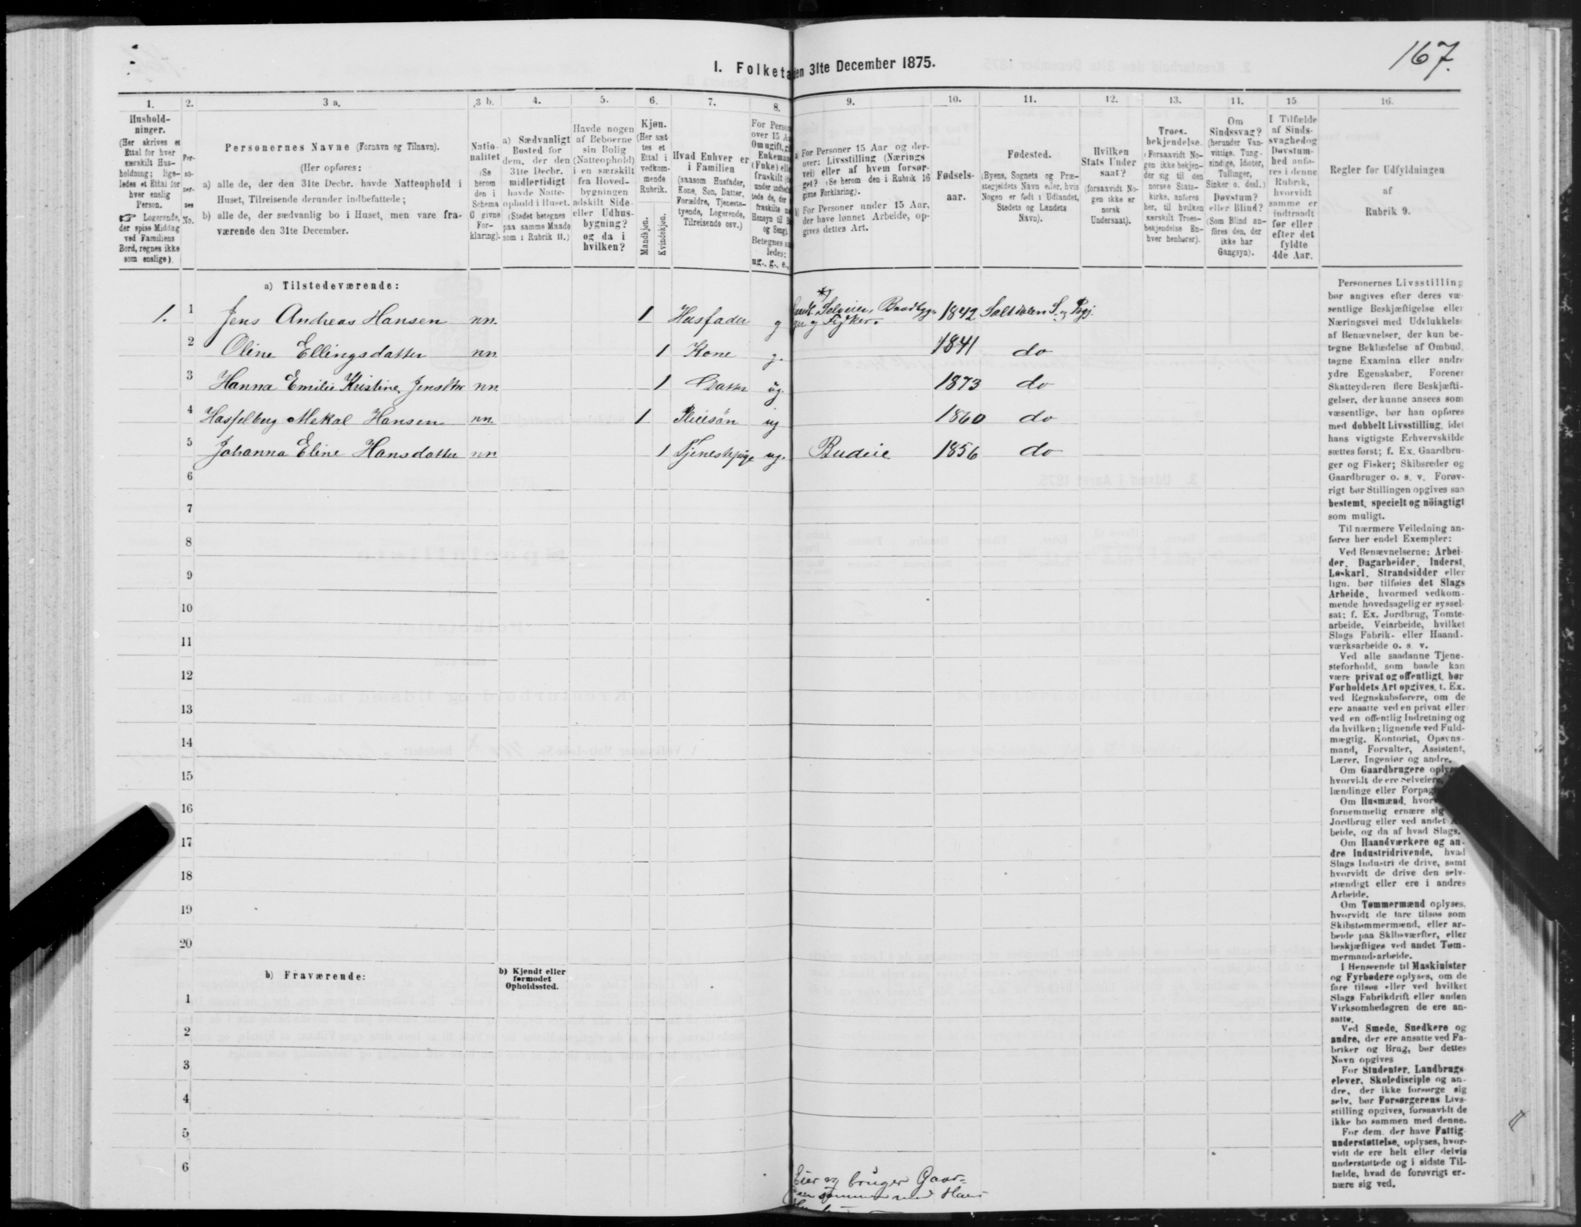 167.
I. Folketæ
den 31te December 1875.
1.
2.
3 a.
3 b.
4.
5.
6.
7.
8.
9.
10.
11.
12.
13.
14.
15
16.
Hushold-
ninger.
(Her skrives et
Ettal for hver
særskilt Hus-
holdning; lige-
ledes et Ettal for
hver enslig
Person.
☞ Logerende,
der spise Middag
ved Familiens
Bord, regnes ikke
som enslige).
Per-
so-
ner-
nes
No.
Personernes Navne (Fornavn og Tilnavn).
(Her opføres:
a) alle de, der den 31te Decbr. havde Natteophold i
Huset, Tilreisende derunder indbefattede;
b) alle de, der sædvanlig bo i Huset, men vare fra-
værende den 31te December.
Natio-
nalitet
(Se
herom
den i
Schema
O givne
For-
klaring).
a) Sædvanligt
Bosted for
dem, der den
31te Decbr.
midlertidigt
havde Natte-
ophold i Huset.
(Stedet betegnes
paa samme Maade
som i Rubrik 11.)
Havde nogen
af Beboerne
sin Bolig
(Natteophold)
i en særskilt
fra Hoved-
bygningen
adskilt Side-
eller Udhus-
bygning?
og da i
hvilken?
Kjøn.
(Her sæt-
tes et
Ettal i
vedkom-
mende
Rubrik.
Mandkjøn.
Kvindekjøn.
Hvad Enhver er
i Familien
(saasom Husfader,
Kone, Søn, Datter,
Forældre, Tjeneste-
tyende, Logerende,
Tilreisende osv.)
For Perso
over 15 A
Om ugift, gi
Enkeman
(Enke) elle
fraskilt
Betegnes s
ledes:
ug., g., e.,
For Personer 15 Aar og der-
over: Livsstilling (Nærings
vei) eller af hvem forsør-
get? (Se herom den i Rubrik 16
givne Forklaring).
For Personer under 15 Aar,
der have lønnet Arbeide, op-
gives dettes Art.
Fødsels-
aar.
Fødested.
(Byens, Sognets og Præ-
stegjeldets Navn eller, hvis
Nogen er født i Udlandet,
Stedets og Landets
Navn).
Hvilken
Stats Under
saat?
(forsaavidt No-
gen ikke er
norsk
Undersaat).
Troes-
bekjendelse.
(Forsaavidt No-
gen ikke bekjen-
der sig til den
norske Stats-
kirke, anføres
her, til hvilken
særskilt Troes-
bekjendelse En-
hver henhører).
Om
Sindssvag?
(herunder Van-
vittige, Tung-
sindige, Idioter,
Tullinger,
Sinker o. desl.)
Døvstum?
eller Blind?
(Som Blind an-
føres den, der
ikke har
Gangsyn).
I Tilfælde
af Sinds-
svaghed og
Døvstum-
hed anfø-
res i denne
Rubrik,
hvorvidt
samme er
indtraadt
før eller
efter det
fyldte
4de Aar.
Regler for Udfyldningen
af
Rubrik 9.
a) Tilstedeværende:
1. 1 Jens Andreas Hansen nn. 1 Husfader g *) Selveier, Baadbyg- 1842 Saltdalen S. og Pgj.
ger og Fisker.
2 Oline Ellingsdatter nn. 1 Kone g. 1841 do
3 Hanna Emilie Kristine Jensdtr nn 1 Datter ug. 1873 do
4 Hasselberg Mekal Hansen nn. 1 Pleiesøn ug 1860 do
5 Johanna Eline Hansdatter nn 1 Tjenestepige ug. Budeie 1856 do
6
7
8
9
10
11
12
13
14
15
16
17
18
19
20
b) Fraværende:
b) Kjendt eller
formodet
Opholdssted.
1
2
3
4
5
6
Eier og bruger Gaar-
Personernes Livsstilling
bør angives efter deres væ-
sentlige Beskjæftigelse eller
Næringsvei med Udelukkelse
af Benævnelser, der kun be-
tegne Beklædelse af Ombud,
tagne Examina eller andre
ydre Egenskaber. Forener
Skatteyderen flere Beskjæfti-
gelser, der kunne ansees som
væsentlige, bør han opføres
med dobbelt Livsstilling, idet
hans vigtigste Erhvervskilde
sættes først; f. Ex. Gaardbru-
ger og Fisker; Skibsreder og
Gaardbruger o. s. v. Forøv-
rigt bør Stillingen opgives saa
bestemt, specielt og nöiagtigt
som muligt.
Til nærmere Veiledning an-
føres her endel Exempler:
Ved Benævnelserne: Arbei-
der, Dagarbeider, Inderst,
Løskarl, Strandsidder eller
lign. bør tilføies det Slags
Arbeide, hvormed vedkom-
mende hovedsagelig er syssel-
sat; f. Ex. Jordbrug, Tomte-
arbeide, Veiarbeide, hvilket
Slags Fabrik- eller Haand-
værksarbeide o. s. v.
Ved alle saadanne Tjene-
steforhold, som baade kan
være privat og offentligt, bør
Forholdets Art opgives, t. Ex.
ved Regnskabsførere, om de
ere ansatte ved en privat eller
ved en offentlig Indretning og
da hvilken; lignende ved Fuld-
mægtig, Kontorist, Opsyns-
mand, Forvalter, Assistent,
Lærer, Ingeniør og andre.
Om Gaardbrugere oply
hvorvidt de ere Selveiere,
lændinge eller Forpag
Om Husmænd, hvor
fornemmelig ernære sig
Jordbrug eller ved andet
beide, og da af hvad Slags.
Om Haandværkere og an-
dre Industridrivende, hvad
Slags Industri de drive, samt
hvorvidt de drive den selv-
stændigt eller ere i andres
Arbeide.
Om Tømmermænd oplyses,
hvorvidt de fare tilsøs som
Skibstømmermænd, eller ar-
beide paa Skibsværfter, eller
beskjæftiges ved andet Tøm-
mermandsarbeide.
I Henseende til Maskinister
og Fyrbødere oplyses, om de
fare tilsøs eller ved hvilket
Slags Fabrikdrift eller anden
Virksomhedsgren de ere an-
satte.
Ved Smede, Snedkere og
andre, der ere ansatte ved Fa-
briker og Brug, bør dettes
Navn opgives
For Studenter, Landbrugs-
elever, Skoledisciple og an-
dre, der ikke forsørge sig
selv, bør Forsørgerens Livs-
stilling opgives, forsaavidt de
ikke bo sammen med denne.
For dem, der have Fattig-
understøttelse, oplyses, hvor-
vidt de ere helt eller delvis
understøttede og i sidste Til-
fælde, hvad de forøvrigt er-
nære sig ved.